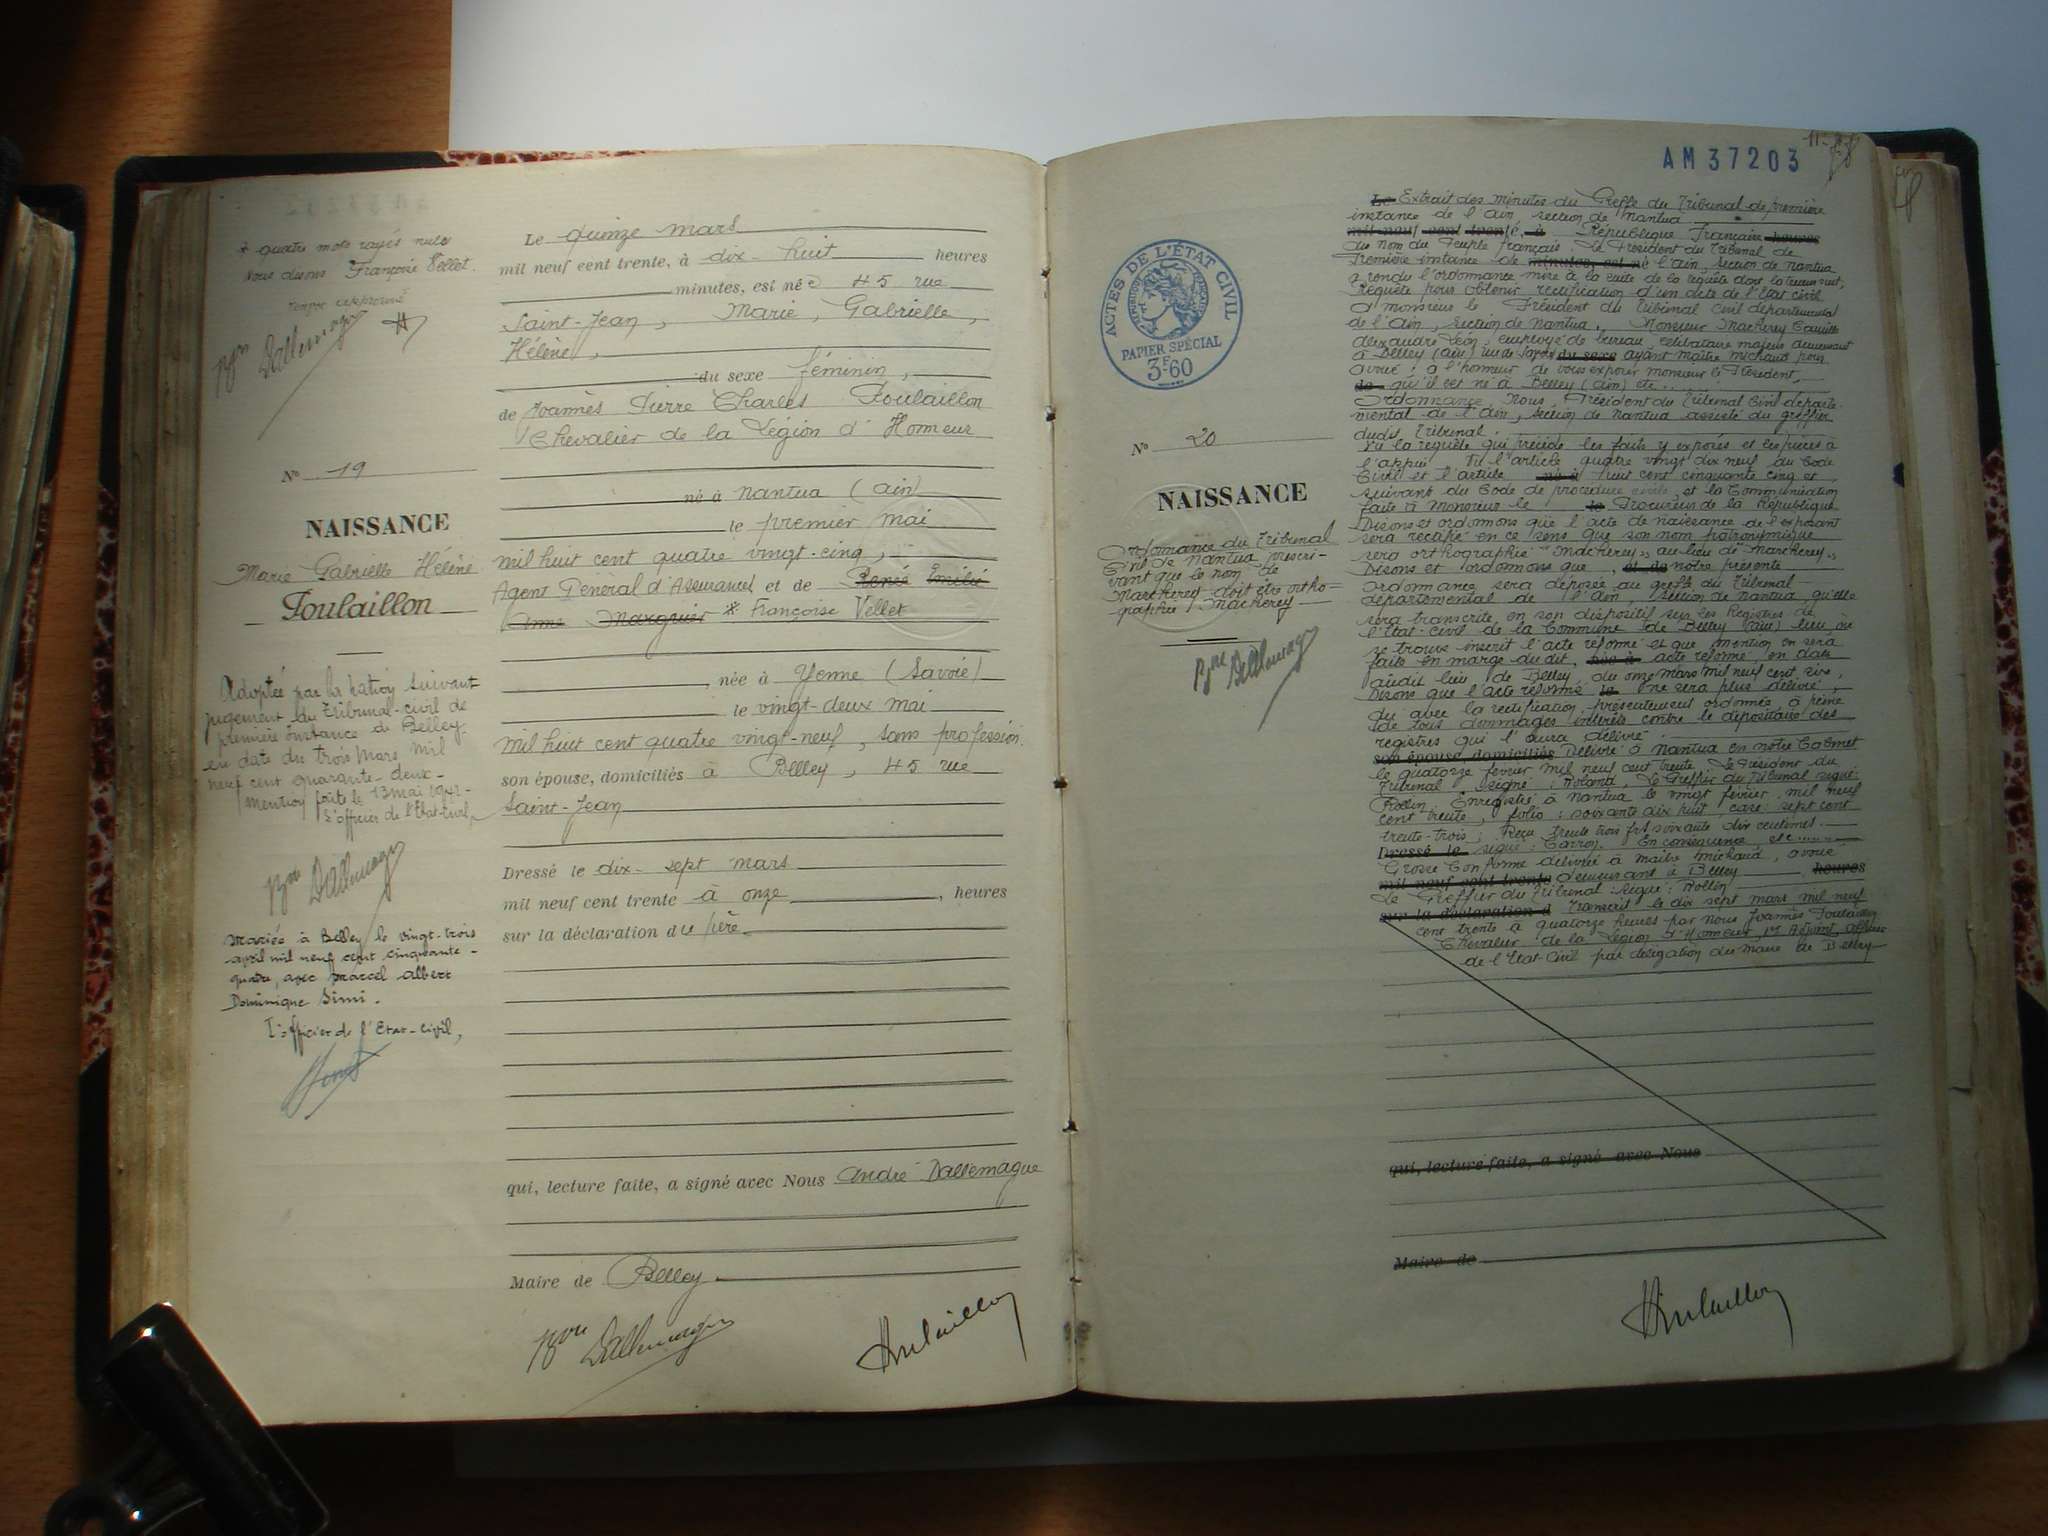 * quatre mots rayés nuls
nous disons Françoise Vellet.
Le quinze mars
mil neuf cent trente, à dix-huit heures
minutes, est née 45 rue
Saint-Jean, Marie, Gabrielle,
Hélène,
du sexe féminin,
de Joannès Pierre Charles Poulaillon
Chevalier de la Légion d'Honneur
né à Nantua (Ain)
le premier mai
mil huit cent quatre vingt-cinq,
Agent Général d'Assurances et de Renée Emilie
Anne Marguier * Françoise Vellet
née à Yenne (Savoie)
le vingt-deux mai
mil huit cent quatre vingt-neuf, sans profession.
son épouse, domiciliés à Belley, 45 rue
Saint-Jean
Dressé le dix-sept mars
mil neuf cent trente à onze, heures
sur la déclaration du père
qui, lecture faite, a signé avec Nous André Dallemagne
Maire de Belley
Dallemagne
Poulaillon
N° 19
NAISSANCE
Marie Gabrielle Hélène
Poulaillon
Adoptée par la nation suivant
jugement du Tribunal-civil de
première instance de Belley
en date du trois Mars mil
neuf cent quarante-deux-
mention faite le 13 mai 1942-
L'officier de l'Etat-Civil,
Dallemagne
Mariée à Belley le vingt-trois
avril mil neuf cent cinquante-
quatre, avec Marcel Albert
Dominique Simi.
L'officier de l'Etat-Civil,
AM 37203
ACTES DE L'ÉTAT CIVIL
RÉPUBLIQUE FRANÇAISE
PAPIER SPÉCIAL
3F60
N° 20
NAISSANCE
Ordonnance du Tribunal
Civil de Nantua prescri-
vant que le nom de
Marcherey doit être ortho-
graphié Macherey
Dallemagne
Le Extrait des minutes du Greffe du Tribunal de première
instance de l'Ain section de Nantua
mil neuf cent trente, à République Française heures
Au nom du Peuple français le Président du Tribunal de
Première instance de minutes, est né l'Ain, section de Nantua
a rendu l'ordonnance mise à la suite de la requête dont la teneur suit,
Requête pour obtenir rectification d'un acte de l'Etat Civil
A monsieur le Président du Tribunal Civil départemental
de l'Ain, section de Nantua, Monsieur Macherey Camille
Alexandre Léon, employé de bureau, célibataire majeur demeurant
à Belley (Ain) du sexe ayant maître Michaud pour
avoué : a l'honneur de vous exposer monsieur le Président,
de qu'il est né à Belley (Ain) etc...
Ordonnance Nous, Président du Tribunal Civil départe-
mental de l'Ain, section de Nantua assisté du greffier
dudit Tribunal.
Vu la requête qui précède les faits y exposés et les pièces à
l'appui Vu l'article quatre vingt dix neuf du Code
Civil et l'article né à huit cent cinquante cinq et
suivant du Code de procédure civile, et la Communication
faite à Monsieur le le Procureur de la République
Disons et ordonnons que l'acte de naissance de l'exposant
sera rectifié en ce sens que son nom patronymique
sera orthographié "Macherey" au lieu de "Marcherey"
Disons et ordonnons que, et de notre présente
Ordonnance sera déposée au greffe du Tribunal
départemental de l'Ain, section de Nantua, qu'elle
sera transcrite en son dispositif sur les Registres de
l'Etat-Civil de la Commune de Belley (Ain) lieu où
se trouve inscrit l'acte réformé et que mention en sera
faite en marge du dit, née à acte réformé en date
audit lieu de Belley, du onze mars mil neuf cent six,
Disons que l'acte réformé le ne sera plus délivré,
qu'avec la rectification présentement ordonnée, à peine
de tous dommages intérêts contre le dépositaire des
registres qui l'aura délivré.
son épouse, domiciliés Délivré à Nantua en notre Cabinet
le quatorze février mil neuf cent trente, Le Président du
Tribunal signé : Le Greffier du Tribunal signé:
Rollin. Enregistré à Nantua le vingt février, mil neuf
cent trente, folio : soixante dix huit, case : sept cent
trente-trois; Reçu trente trois frs soixante dix centimes.
Dressé le signé : Carron. En conséquence etc.......
Grosse Conforme délivrée à maître Michaud, avoué
mil neuf cent trente demeurant à Belley heures
Le Greffier du Tribunal : signé : Rollin
sur la déclaration d Transcrit le dix sept mars mil neuf
cent trente à quatorze heures par nous Joannès Poulaillon
Chevalier de la Légion d'Honneur, 1er Adjoint, officier
de l'Etat-Civil par délégation du maire de Belley
qui, lecture faite, a signé avec Nous
Maire de
Poulaillon